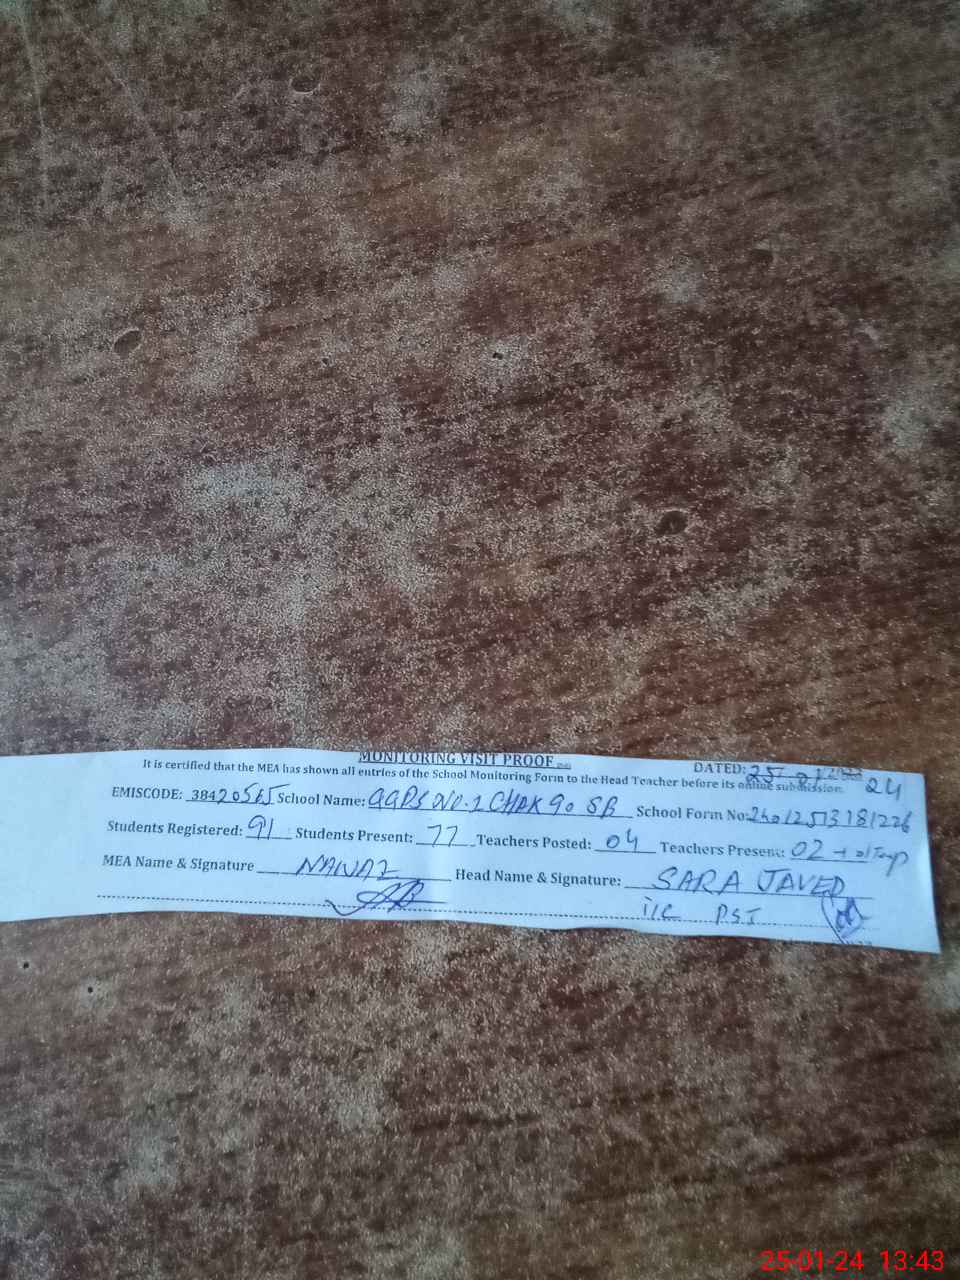 MONITORING VISIT PROOF
DATED: 25-01-2023 24
It is certified that the MEA has shown all entries of the School Monitoring Form to the Head Teacher before its online submission.
EMISCODE: 38420565 School Name: GGPS NO.1 CHAK 90 SB School Form No: 24012513181226
Students Registered: 91 Students Present: 77 Teachers Posted: 04 Teachers Present: 02 +
MEA Name & Signature NAWAZ Head Name & Signature: SARA JAVED
I/C PST
25-01-24 13:43